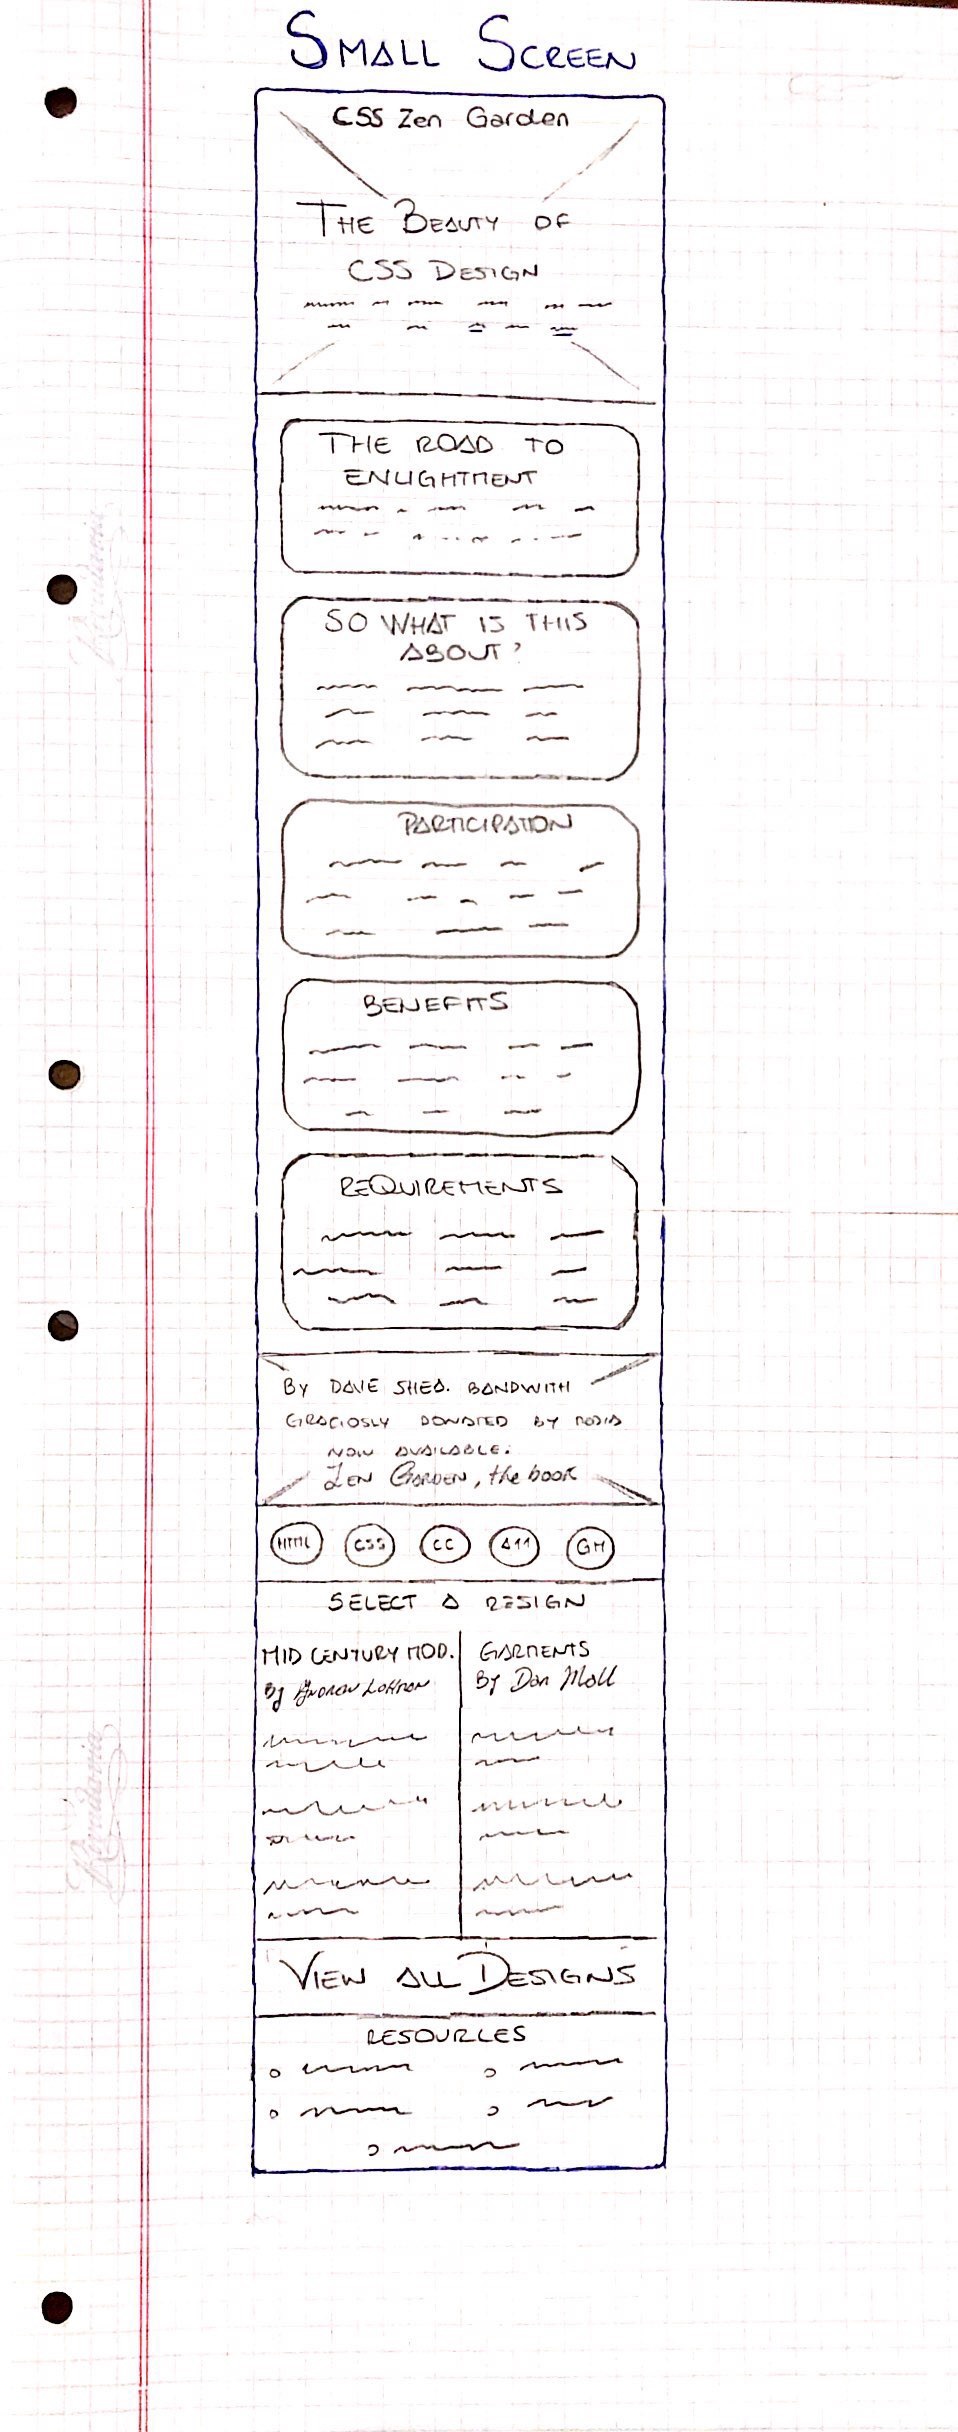 SMALL SCREEN
CSS Zen Garden
THE BEAUTY OF
CSS DESIGN
THE ROAD TO
ENLIGHTMENT
SO WHAT IS THIS
ABOUT?
PARTICIPATION
BENEFITS
REQUIREMENTS
By DAVE SHEA. BANDWITH
GRACIOSLY DONATED BY
NOW AVAILABLE:
ZEN GARDEN, the book
HTML CSS CC A11 GH
SELECT A DESIGN
MID CENTURY MOD.
By Andrew Lohman
GARMENTS
By Dan Mall
VIEW ALL DESIGNS
RESOURCES